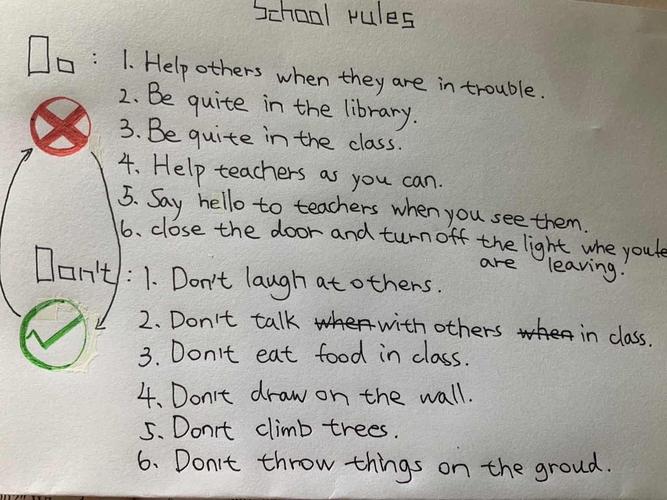 School rules
Do : 1. Help others when they are in trouble.
2. Be quite in the library.
3. Be quite in the class.
4. Help teachers as you can.
5. Say hello to teachers when you see them.
6. close the door and turn off the light whe
are leaving.
Don't : 1. Don't laugh at others.
2. Don't talk when with others when in class.
3. Don't eat food in class.
4. Don't draw on the wall.
5. Don't climb trees.
6. Don't throw things on the groud.